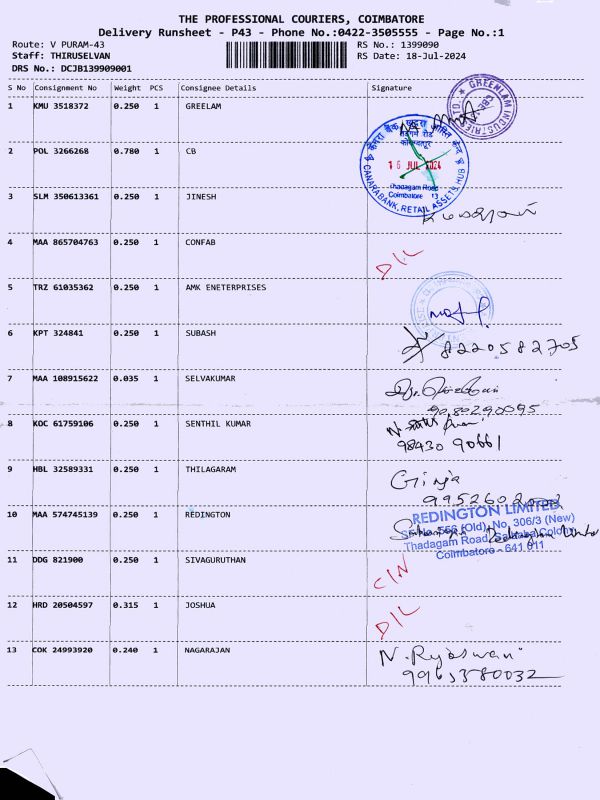 THE PROFESSIONAL COURIERS, COIMBATORE
Delivery Runsheet - P43 - Phone No.:0422-3505555 - Page No.:1
Route: V PURAM-43 RS No.: 1399090
Staff: THIRUSELVAN RS Date: 18-Jul-2024
DRS No.: DCJB139909001
S No Consignment No Weight PCS Consignee Details Signature
1 KMU 3518372 0.250 1 GREELAM
GREENLAM INDUSTRIES LTD.
2 POL 3266268 0.780 1 CB
16 JUL 2024
CANARA BANK, RETAIL ASSETS HUB
Thadagam Road
Coimbatore 13
3 SLM 350613361 0.250 1 JINESH
4 MAA 865704763 0.250 1 CONFAB
D/L
5 TRZ 61035362 0.250 1 AMK ENETERPRISES
6 KPT 324841 0.250 1 SUBASH
8220582705
7 MAA 108915622 0.035 1 SELVAKUMAR
9080290095
8 KOC 61759106 0.250 1 SENTHIL KUMAR
98430 90661
9 HBL 32589331 0.250 1 THILAGARAM
Girija
10 MAA 574745139 0.250 1 REDINGTON
REDINGTON LIMITED
SF.No. 556 (Old), No. 306/3 (New)
Thadagam Road,
Coimbatore - 641 011
11 DDG 821900 0.250 1 SIVAGURUTHAN
C/N
12 HRD 20504597 0.315 1 JOSHUA
D/L
13 COK 24993920 0.240 1 NAGARAJAN